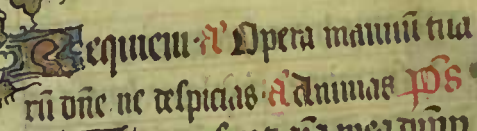 Requiem A Opera manuū tua
rū dn̄e ne despicias A Animas P̄s